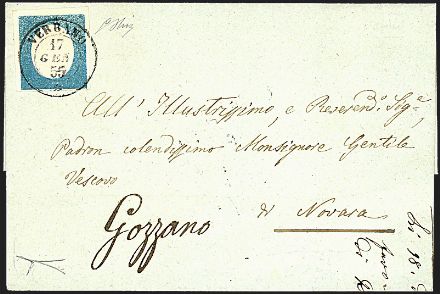 VERBANO
17
GEN
55
All' Illustrissimo, e Reverend.º Sig.e
Padron colendissimo Monsignore Gentile
Vescovo
di Novara
Gozzano